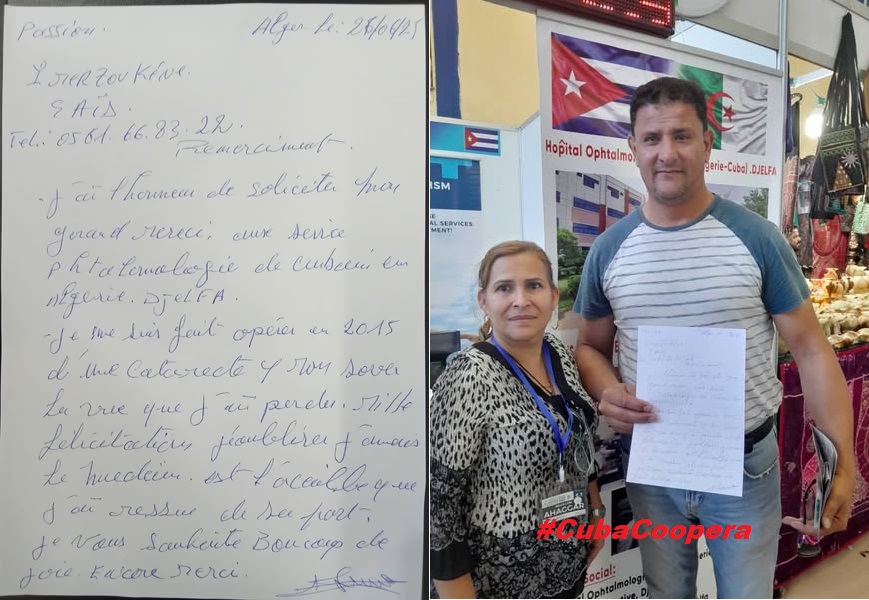 Passion.
Alger Le: 25/06/25
MERZOUKENE.
SAÏD.
Tel: 0561.66.83.22.
Remerciment.
- J'ai l'honneur de soliciter mon
grand merci, aux service
phtatmologie de cubain en
Algerie. DJELFA.
- Je me suis fait opérer en 2015
d'une Cataracte y mon sover
La vue que j'ai perdu. Mille
félicitations, j'oublirer j'amais
Le medecin. est l'accuible que
j'ai ressue de sa part.
je vous souhaite Boucoup de
joie. Encore merci.
ISM
SE
L SERVICES:
MENT!
Hopital Ophtalmo
gerie-Cuba) .DJELFA
AHAGGAR
#CubaCoopera
Social:
tal Ophtalmolog
ative, Dj
lfa